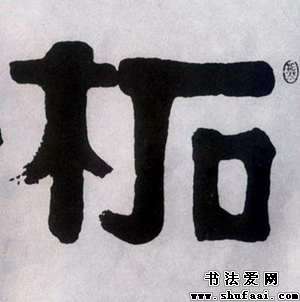 柘
书法爱网
www.shufaai.com